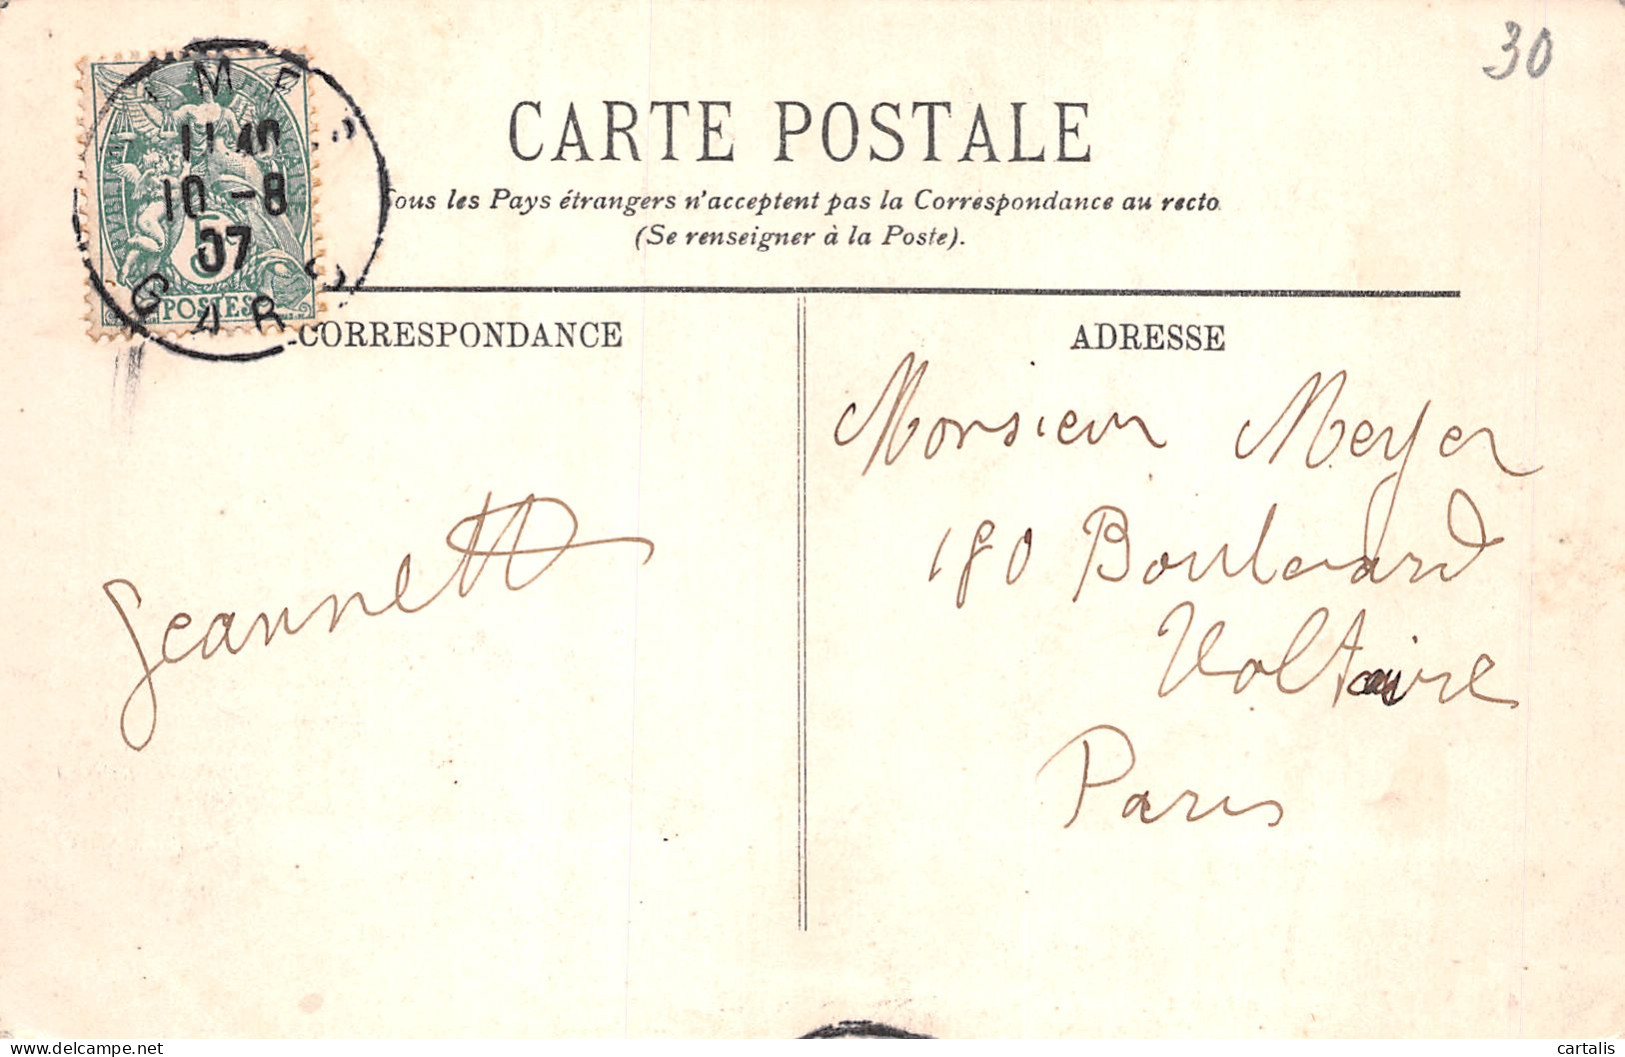 30
CARTE POSTALE
ous les Pays étrangers n'acceptent pas la Correspondance au recto
(Se renseigner à la Poste).
IMES
11 40
10 - 8
07
GARD
5
POSTES
CORRESPONDANCE
ADRESSE
Jeannette
Monsieur Meyer
180 Boulevard
Voltaire
Paris
delcampe.net
cartalis